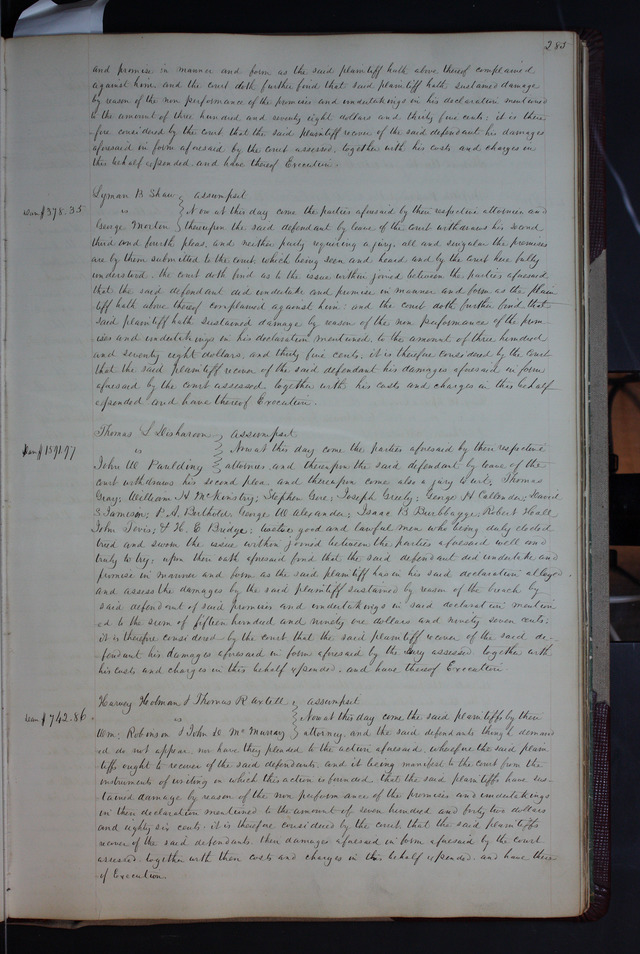 283
and promise in manner and form as the said plaintiff hath above thereof complained
against him and the court doth further find that said plaintiff hath sustained damage
by reason of the non performance of the promises and undertakings in his declaration mentioned
to the amount of three hundred and seventy eight dollars and thirty five cents; it is there
fore considered by the court that the said plaintiff recover of the said defendant his damages
aforesaid in form aforesaid by the court assessed, together with his costs and charges in
this behalf expended, and have thereof Execution.
Lyman B Shaw } assumpsit
Dam $378.35 vs } Now at this day come the parties aforesaid by their respective attornies and
George Morton } thereupon the said defendant by leave of the court withdraws his second
third and fourth pleas, and neither party requiring a jury, all and singular the premises
are by them submitted to the court, which being seen and heard and by the court here fully
understood, the court doth find as to the issue within joined between the parties aforesaid,
that the said defendant did undertake and promise in manner and form as the plain
tiff hath above thereof complained against him; and the court doth further find that
said plaintiff hath sustained damage by reason of the non performance of the prom
ises and undertakings in his declaration mentioned, to the amount of three hundred
and seventy eight dollars, and thirty five cents, it is therefore considered by the court
that the said plaintiff recover of the said defendant his damages aforesaid in form
aforesaid by the court assessed, together with his costs and charges in this behalf
expended and have thereof Execution.
Thomas L Disharoon } assumpsit
Dam $1591.97 vs } Now at this day come the parties aforesaid by their respective
John W Paulding } attornies, and thereupon the said defendant by leave of the
court withdraws his second plea and thereupon come also a jury to wit, Thomas
Gray; William H McKinstry; Stephen Gere; Joseph Greely; George H Callender; David
S Jamison; P. A. Berthold; George W Alexander; Isaac B Burbbayge; Robert Hall
John Jevis; & H. E Bridge; twelve good and lawful men who being duly elected
tried and sworn the issue within joined between the parties aforesaid well and
truly to try, upon their oath aforesaid find that the said defendant did undertake and
promise in manner and form as the said plaintiff has in his said declaration alleged.
and assess the damages by the said plaintiff sustained by reason of the breach by
said defendant of said promises and undertakings in said declaration mention
ed to the sum of fifteen hundred and ninety one dollars and ninety seven cents;
it is therefore considered by the court that the said plaintiff recover of the said de-
fendant his damages aforesaid in form aforesaid by the jury assessed together with
his costs and charges in this behalf expended, and have thereof Execution
Harvey Holman & Thomas R Axtell } assumpsit
Dam $742.86. vs } Now at this day come the said plaintiffs by their
Wm; Robinson & John D. McMurray } attorney, and the said defendants though demand
ed do not appear, nor have they pleaded to the action aforesaid, wherefore the said plain
tiffs ought to recover of the said defendants, and it being manifest to the court from the
instruments of writing on which the action is founded, that the said plaintiffs have sus-
tained damage by reason of the non performance of the promises and undertakings
in their declaration mentioned to the amount of seven hundred and forty two dollars
and eighty six cents; it is therefore considered by the court that the said plaintiffs
recover of the said defendants, their damages aforesaid in form aforesaid by the court
assessed, together with their costs and charges in this behalf expended, and have there
of Execution